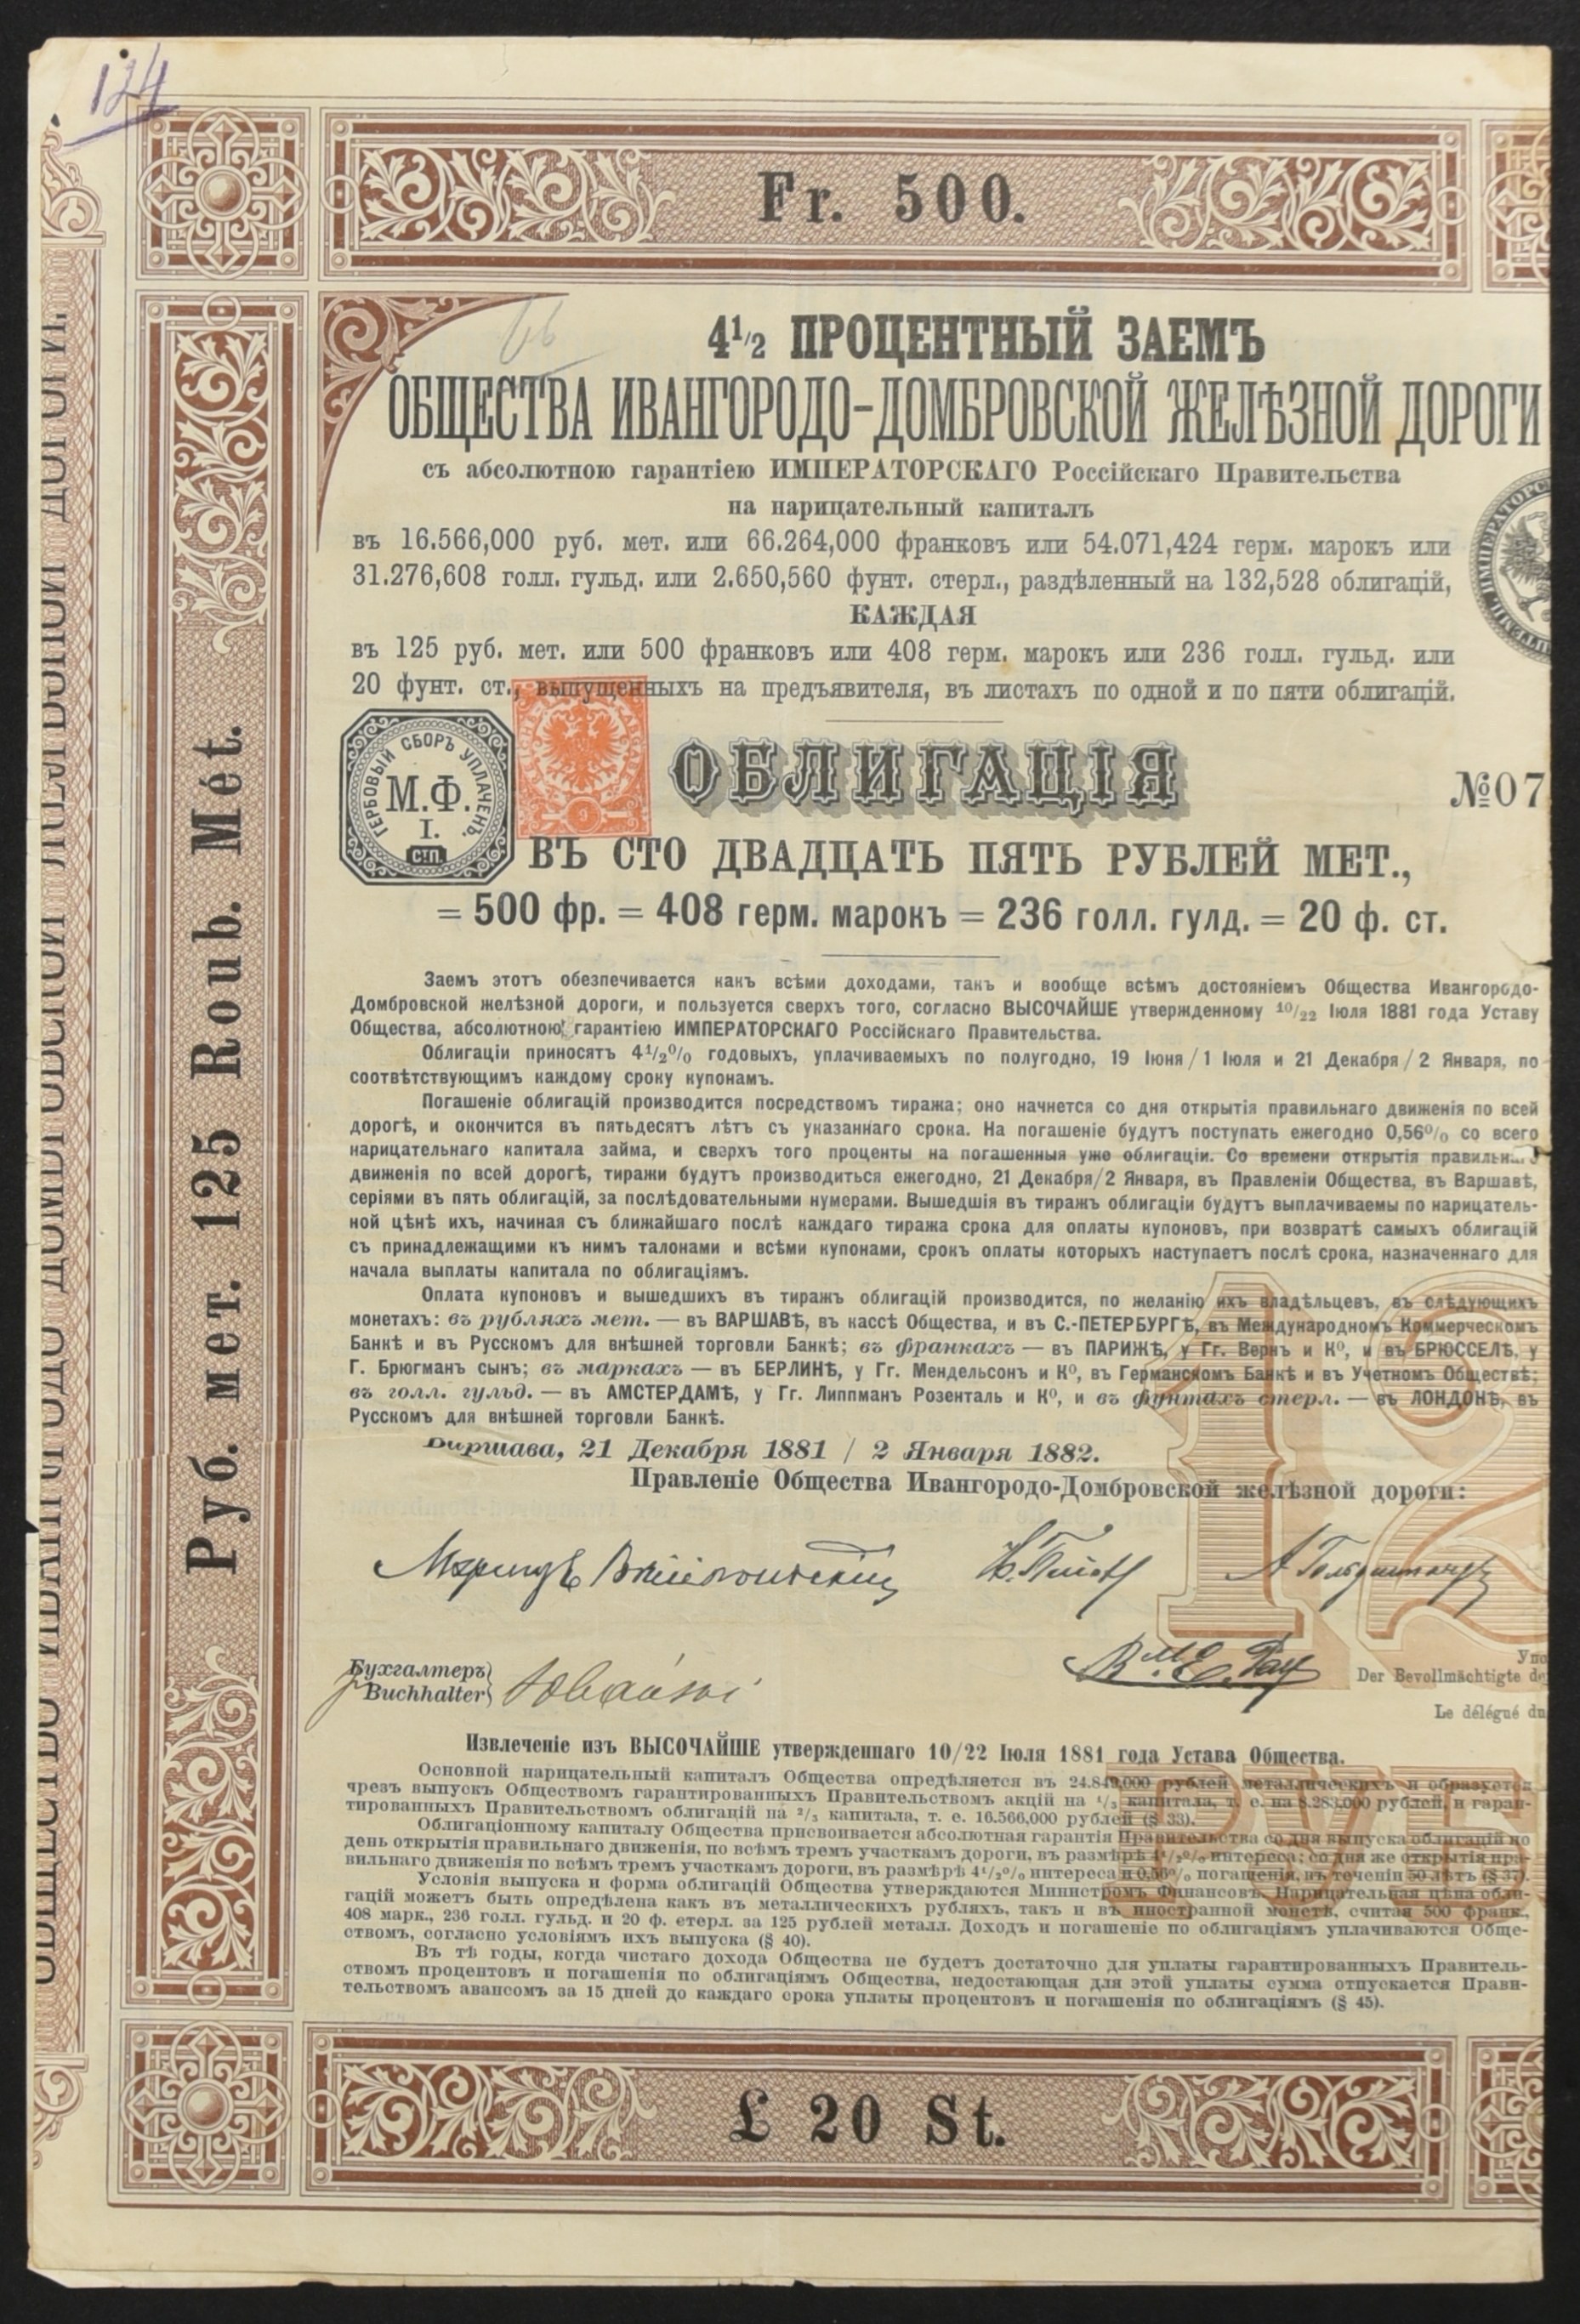 124
Fr. 500.
66
4 1/2 ПРОЦЕНТНЫЙ ЗАЕМЪ
ОБЩЕСТВА ИВАНГОРОДО-ДОМБРОВСКОЙ ЖЕЛѢЗНОЙ ДОРОГИ
съ абсолютною гарантіею ИМПЕРАТОРСКАГО Россійскаго Правительства
на нарицательный капиталъ
въ 16.566,000 руб. мет. или 66.264,000 франковъ или 54.071,424 герм. марокъ или
31.276,608 голл. гульд. или 2.650,560 фунт. стерл., раздѣленный на 132,528 облигацій,
КАЖДАЯ
въ 125 руб. мет. или 500 франковъ или 408 герм. марокъ или 236 голл. гульд. или
20 фунт. ст., выпущенныхъ на предъявителя, въ листахъ по одной и по пяти облигацій.
ГЕРБОВЫЙ СБОРЪ УПЛАЧЕНЪ.
М.Ф.
I.
С:П.
ОБЛИГАЦІЯ
№07
ВЪ СТО ДВАДЦАТЬ ПЯТЬ РУБЛЕЙ МЕТ.,
= 500 фр. = 408 герм. марокъ = 236 голл. гулд. = 20 ф. ст.
Заемъ этотъ обезпечивается какъ всѣми доходами, такъ и вообще всѣмъ достояніемъ Общества Ивангородо-
Домбровской желѣзной дороги, и пользуется сверхъ того, согласно ВЫСОЧАЙШЕ утвержденному 10/22 Іюля 1881 года Уставу
Общества, абсолютною гарантіею ИМПЕРАТОРСКАГО Россійскаго Правительства.
Облигаціи приносятъ 4 1/2% годовыхъ, уплачиваемыхъ по полугодно, 19 Іюня / 1 Іюля и 21 Декабря / 2 Января, по
соотвѣтствующимъ каждому сроку купонамъ.
Погашеніе облигацій производится посредствомъ тиража; оно начнется со дня открытія правильнаго движенія по всей
дорогѣ, и окончится въ пятьдесятъ лѣтъ съ указаннаго срока. На погашеніе будутъ поступать ежегодно 0,56% со всего
нарицательнаго капитала займа, и сверхъ того проценты на погашенныя уже облигаціи. Со времени открытія правильнаго
движенія по всей дорогѣ, тиражи будутъ производиться ежегодно, 21 Декабря/2 Января, въ Правленіи Общества, въ Варшавѣ,
серіями въ пять облигацій, за послѣдовательными нумерами. Вышедшія въ тиражъ облигаціи будутъ выплачиваемы по нарицатель-
ной цѣнѣ ихъ, начиная съ ближайшаго послѣ каждаго тиража срока для оплаты купоновъ, при возвратѣ самыхъ облигацій
съ принадлежащими къ нимъ талонами и всѣми купонами, срокъ оплаты которыхъ наступаетъ послѣ срока, назначеннаго для
начала выплаты капитала по облигаціямъ.
Оплата купоновъ и вышедшихъ въ тиражъ облигацій производится, по желанію ихъ владѣльцевъ, въ слѣдующихъ
монетахъ: въ рубляхъ мет. — въ ВАРШАВѢ, въ кассѣ Общества, и въ С.-ПЕТЕРБУРГѢ, въ Международномъ Коммерческомъ
Банкѣ и въ Русскомъ для внѣшней торговли Банкѣ; въ франкахъ — въ ПАРИЖѢ, у Гг. Вернъ и К⁰, и въ БРЮССЕЛѢ, у
Г. Брюгманъ сынъ; въ маркахъ — въ БЕРЛИНѢ, у Гг. Мендельсонъ и К⁰, въ Германскомъ Банкѣ и въ Учетномъ Обществѣ;
въ голл. гульд. — въ АМСТЕРДАМѢ, у Гг. Липпманъ Розенталь и К⁰, и въ фунтахъ стерл. — въ ЛОНДОНѢ, въ
Русскомъ для внѣшней торговли Банкѣ.
Варшава, 21 Декабря 1881 / 2 Января 1882.
Правленіе Общества Ивангородо-Домбровской желѣзной дороги:
Бухгалтеръ
Buchhalter
Упо
Der Bevollmächtigte de
Le délégué du
Извлеченіе изъ ВЫСОЧАЙШЕ утвержденнаго 10/22 Іюля 1881 года Устава Общества.
Основной нарицательный капиталъ Общества опредѣляется въ 24.849,000 рублей металлическихъ и образуется
чрезъ выпускъ Обществомъ гарантированныхъ Правительствомъ акцій на 1/3 капитала, т. е. на 8.283,000 рублей, и гаран-
тированныхъ Правительствомъ облигацій на 2/3 капитала, т. е. 16.566,000 рублей (§ 33).
Облигаціонному капиталу Общества присвоивается абсолютная гарантія Правительства со дня выпуска облигацій по
день открытія правильнаго движенія, по всѣмъ тремъ участкамъ дороги, въ размѣрѣ 4 1/2% интереса; со дня же открытія пра-
вильнаго движенія по всѣмъ тремъ участкамъ дороги, въ размѣрѣ 4 1/2% интереса и 0,56% погашенія, въ теченіи 50 лѣтъ (§ 37).
Условія выпуска и форма облигацій Общества утверждаются Министромъ Финансовъ. Нарицательная цѣна обли-
гацій можетъ быть опредѣлена какъ въ металлическихъ рубляхъ, такъ и въ иностранной монетѣ, считая 500 франк.,
408 марк., 236 голл. гульд. и 20 ф. стерл. за 125 рублей металл. Доходъ и погашеніе по облигаціямъ уплачиваются Обще-
ствомъ, согласно условіямъ ихъ выпуска (§ 40).
Въ тѣ годы, когда чистаго дохода Общества не будетъ достаточно для уплаты гарантированныхъ Правитель-
ствомъ процентовъ и погашенія по облигаціямъ Общества, недостающая для этой уплаты сумма отпускается Прави-
тельствомъ авансомъ за 15 дней до каждаго срока уплаты процентовъ и погашенія по облигаціямъ (§ 45).
£ 20 St.
Руб. мет. 125 Roub. Mét.
ОБЩЕСТВО ИВАНГОРОДО-ДОМБРОВСКОЙ ЖЕЛѢЗНОЙ ДОРОГИ.
12
РУБ